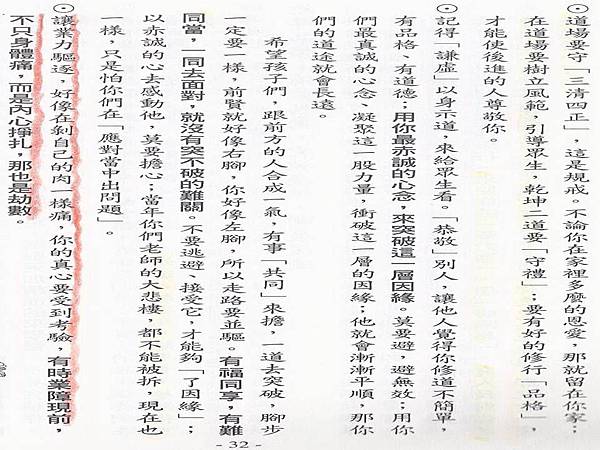 ⊙道場要守「三清四正」，這是規戒。不論你在家裡多麼的恩愛，那就留在你家；
在道場要樹立風範，引導眾生，乾坤二道要「守禮」；要有好的修行「品格」，
才能使後進的人尊敬你。
⊙記得「謙虛」以身示道，來給眾生看。「恭敬」別人，讓他人覺得你修道不簡單，
有品格、有道德；用你最赤誠的心念，來突破這一層因緣。莫要避，避無效；用你
們最真誠的心念、凝聚這一股力量，衝破這一層的因緣；他就會漸漸平順，那你
們的道途就會長遠。
希望孩子們，跟前方的人合成一氣，有事「共同」來擔，一道去突破，腳步
一定要一樣，前賢就好像右腳，你好像左腳，所以走路要並驅。有福同享，有難
同當，一同去面對，就沒有突不破的難關。不要逃避、接受它，才能夠「了因緣」；
以赤誠的心去感動他，莫要擔心；當年你們老師的大悲樓，都不能被拆，現在也
一樣，只是怕你們在「應對當中出問題」。
⊙讓業力驅逐，好像在剝自己的肉一樣痛，你的真心要受到考驗，有時業障現前，
不只身體痛，而是內心掙扎，那也是劫數。
- 32 -